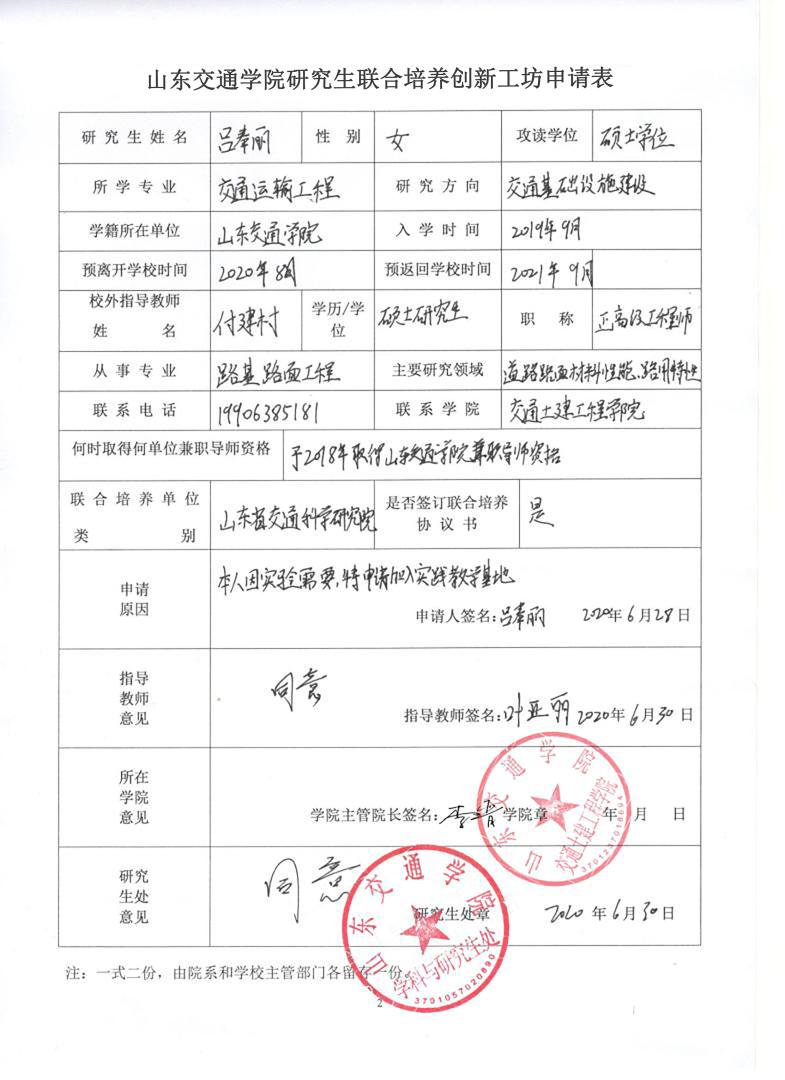 山东交通学院研究生联合培养创新工坊申请表
研究生姓名 吕奉丽 性别 女 攻读学位 硕士学位
所学专业 交通运输工程 研究方向 交通基础设施建设
学籍所在单位 山东交通学院 入学时间 2019年9月
预离开学校时间 2020年8月 预返回学校时间 2021年9月
校外指导教师姓名 付建村 学历/学位 硕士研究生 职称 正高级工程师
从事专业 路基路面工程 主要研究领域 道路路面材料性能、路用特性
联系电话 19906385181 联系学院 交通土建工程学院
何时取得何单位兼职导师资格 于2018年取得山东交通学院兼职导师资格
联合培养单位类别 山东省交通科学研究院 是否签订联合培养协议书 是
申请原因 本人因实验需要,特申请加入实践教学基地
申请人签名:吕奉丽 2020年6月28日
指导教师意见 同意
指导教师签名:叶亚丽 2020年6月30日
所在学院意见
学院主管院长签名: 李晋 学院章 年 月 日
山东交通学院
交通土建工程学院
3701237018694
研究生处意见 同意
研究生处章 2020年6月30日
山东交通学院
学科与研究生处
3701057020890
注:一式二份,由院系和学校主管部门各留存一份。
2